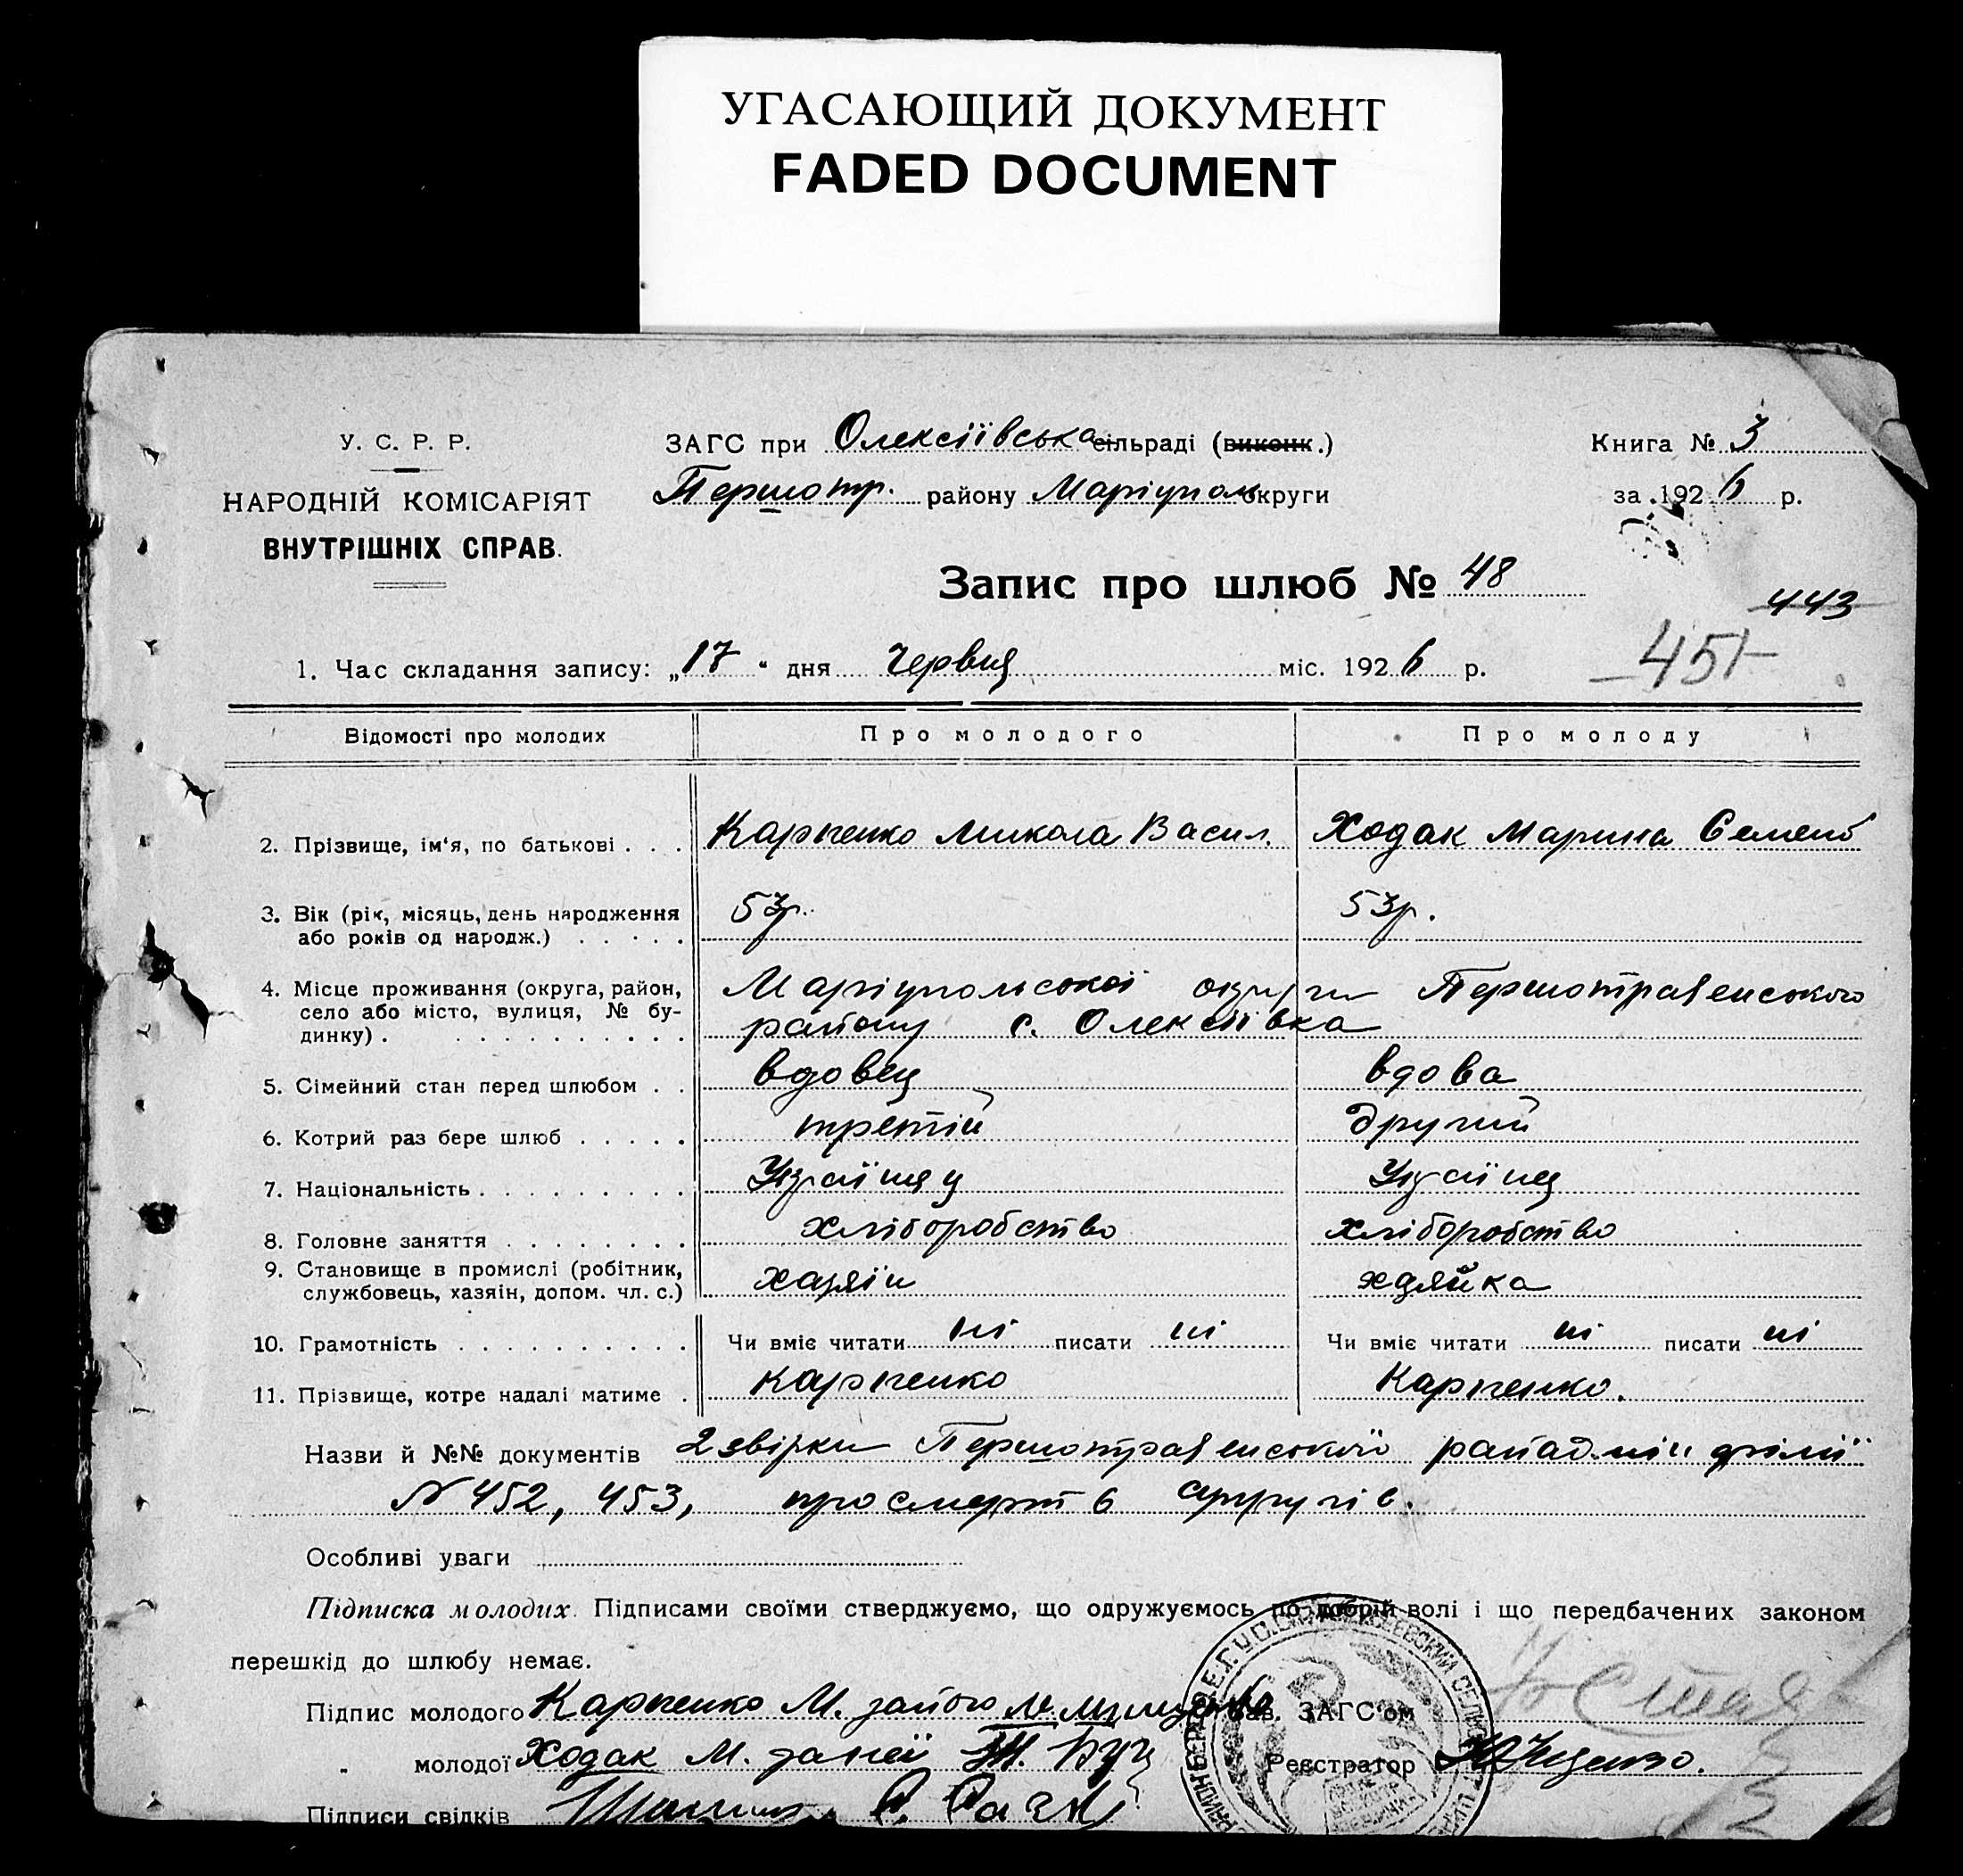 УГАСАЮЩИЙ ДОКУМЕНТ
FADED DOCUMENT
У. С. Р. Р.
НАРОДНІЙ КОМІСАРІЯТ
ВНУТРІШНІХ СПРАВ.
ЗАГС при Олексіївська сільраді (виконк.)
Першотр. району Маріупол округи
Книга № 3
за 1926 р.
Запис про шлюб № 48
443
451
1. Час складання запису: „17“ дня Червця міс. 1926 р.
Відомості про молодих Про молодого Про молоду
2. Прізвище, ім'я, по батькові . . . Карпенко Микола Васил. Ходак Марина Семенов
3. Вік (рік, місяць, день народження 53р. 53р.
або років од народж.) . . . . .
4. Місце проживання (округа, район, Маріупольської округи Першотравенського
село або місто, вулиця, № бу- району с. Олексіївка
динку) . . . . . . . . . . .
5. Сімейний стан перед шлюбом . . вдовец вдова
6. Котрий раз бере шлюб . . . . . третій другий
7. Національність . . . . . . . . . Українец Україц
8. Головне заняття . . . . . . . . хліборобство хліборобство
9. Становище в промислі (робітник, хазяїн хазяйка
службовець, хазяін, допом. чл. с.)
10. Грамотність . . . . . . . . . . Чи вміє читати ні писати ні Чи вміє читати ні писати ні
11. Прізвище, котре надалі матиме . Карпенко Карпенко.
Назви й №№ документів 2 звірки Першотравенської філії
N 452, 453, про смерть
Особливі уваги
Підписка молодих. Підписами своїми стверджуємо, що одружуємось по добрій волі і що передбачених законом
перешкід до шлюбу немає.
Підпис молодого Карпенко М. за його Зав. ЗАГС'ом
„ молодої Ходак М. за неї Реєстратор
Підписи свідків